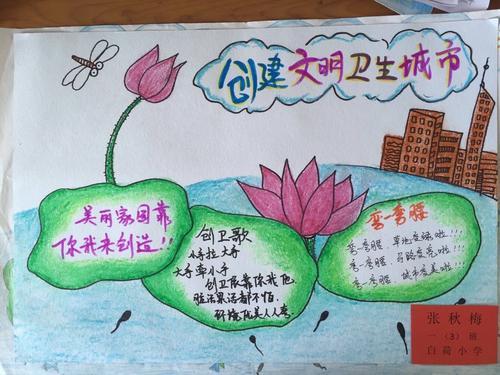 创建文明卫生城市
美丽家园靠
你我来创造!!
创卫歌
小手拉大手
大手牵小手
创卫依靠你我他
脏活累活都不怕
环境优美人人夸
弯一弯腰
弯一弯腰 草地变绿啦!!!
弯一弯腰 马路变亮啦!!!
弯一弯腰 城市变美啦!!!
张秋梅
一(3)班
白荷小学